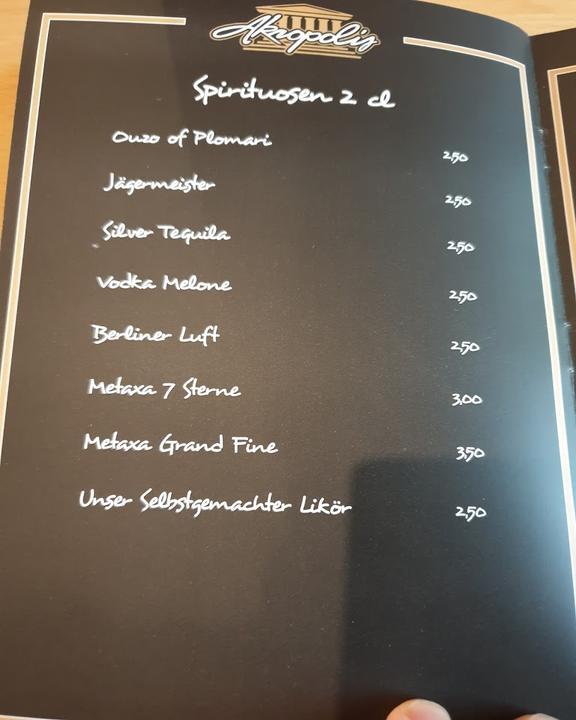 Akropolis
Spirituosen 2 cl
Ouzo of Plomari 2,50
Jägermeister 2,50
Silver Tequila 2,50
Vodka Melone 2,50
Berliner Luft 2,50
Metaxa 7 Sterne 3,00
Metaxa Grand Fine 3,50
Unser Selbstgemachter Likör 2,50